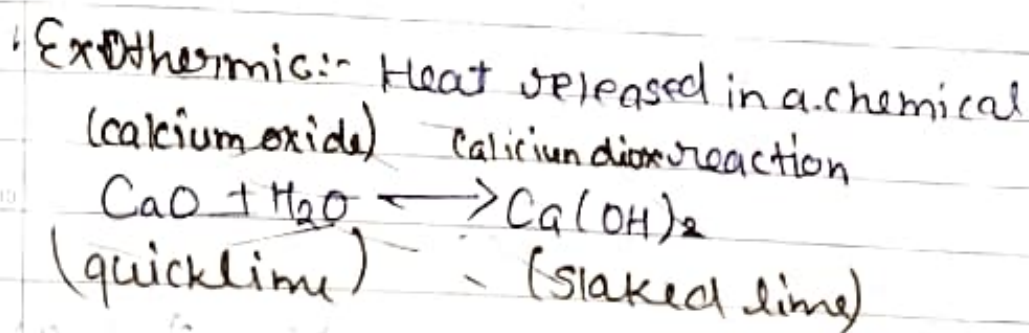 Exothermic:- Heat released in a. chemical
(calcium oxide) Caliciun diox reaction
CaO + H₂O ⟷ Ca(OH)₂
(quicklime) (Slaked lime)